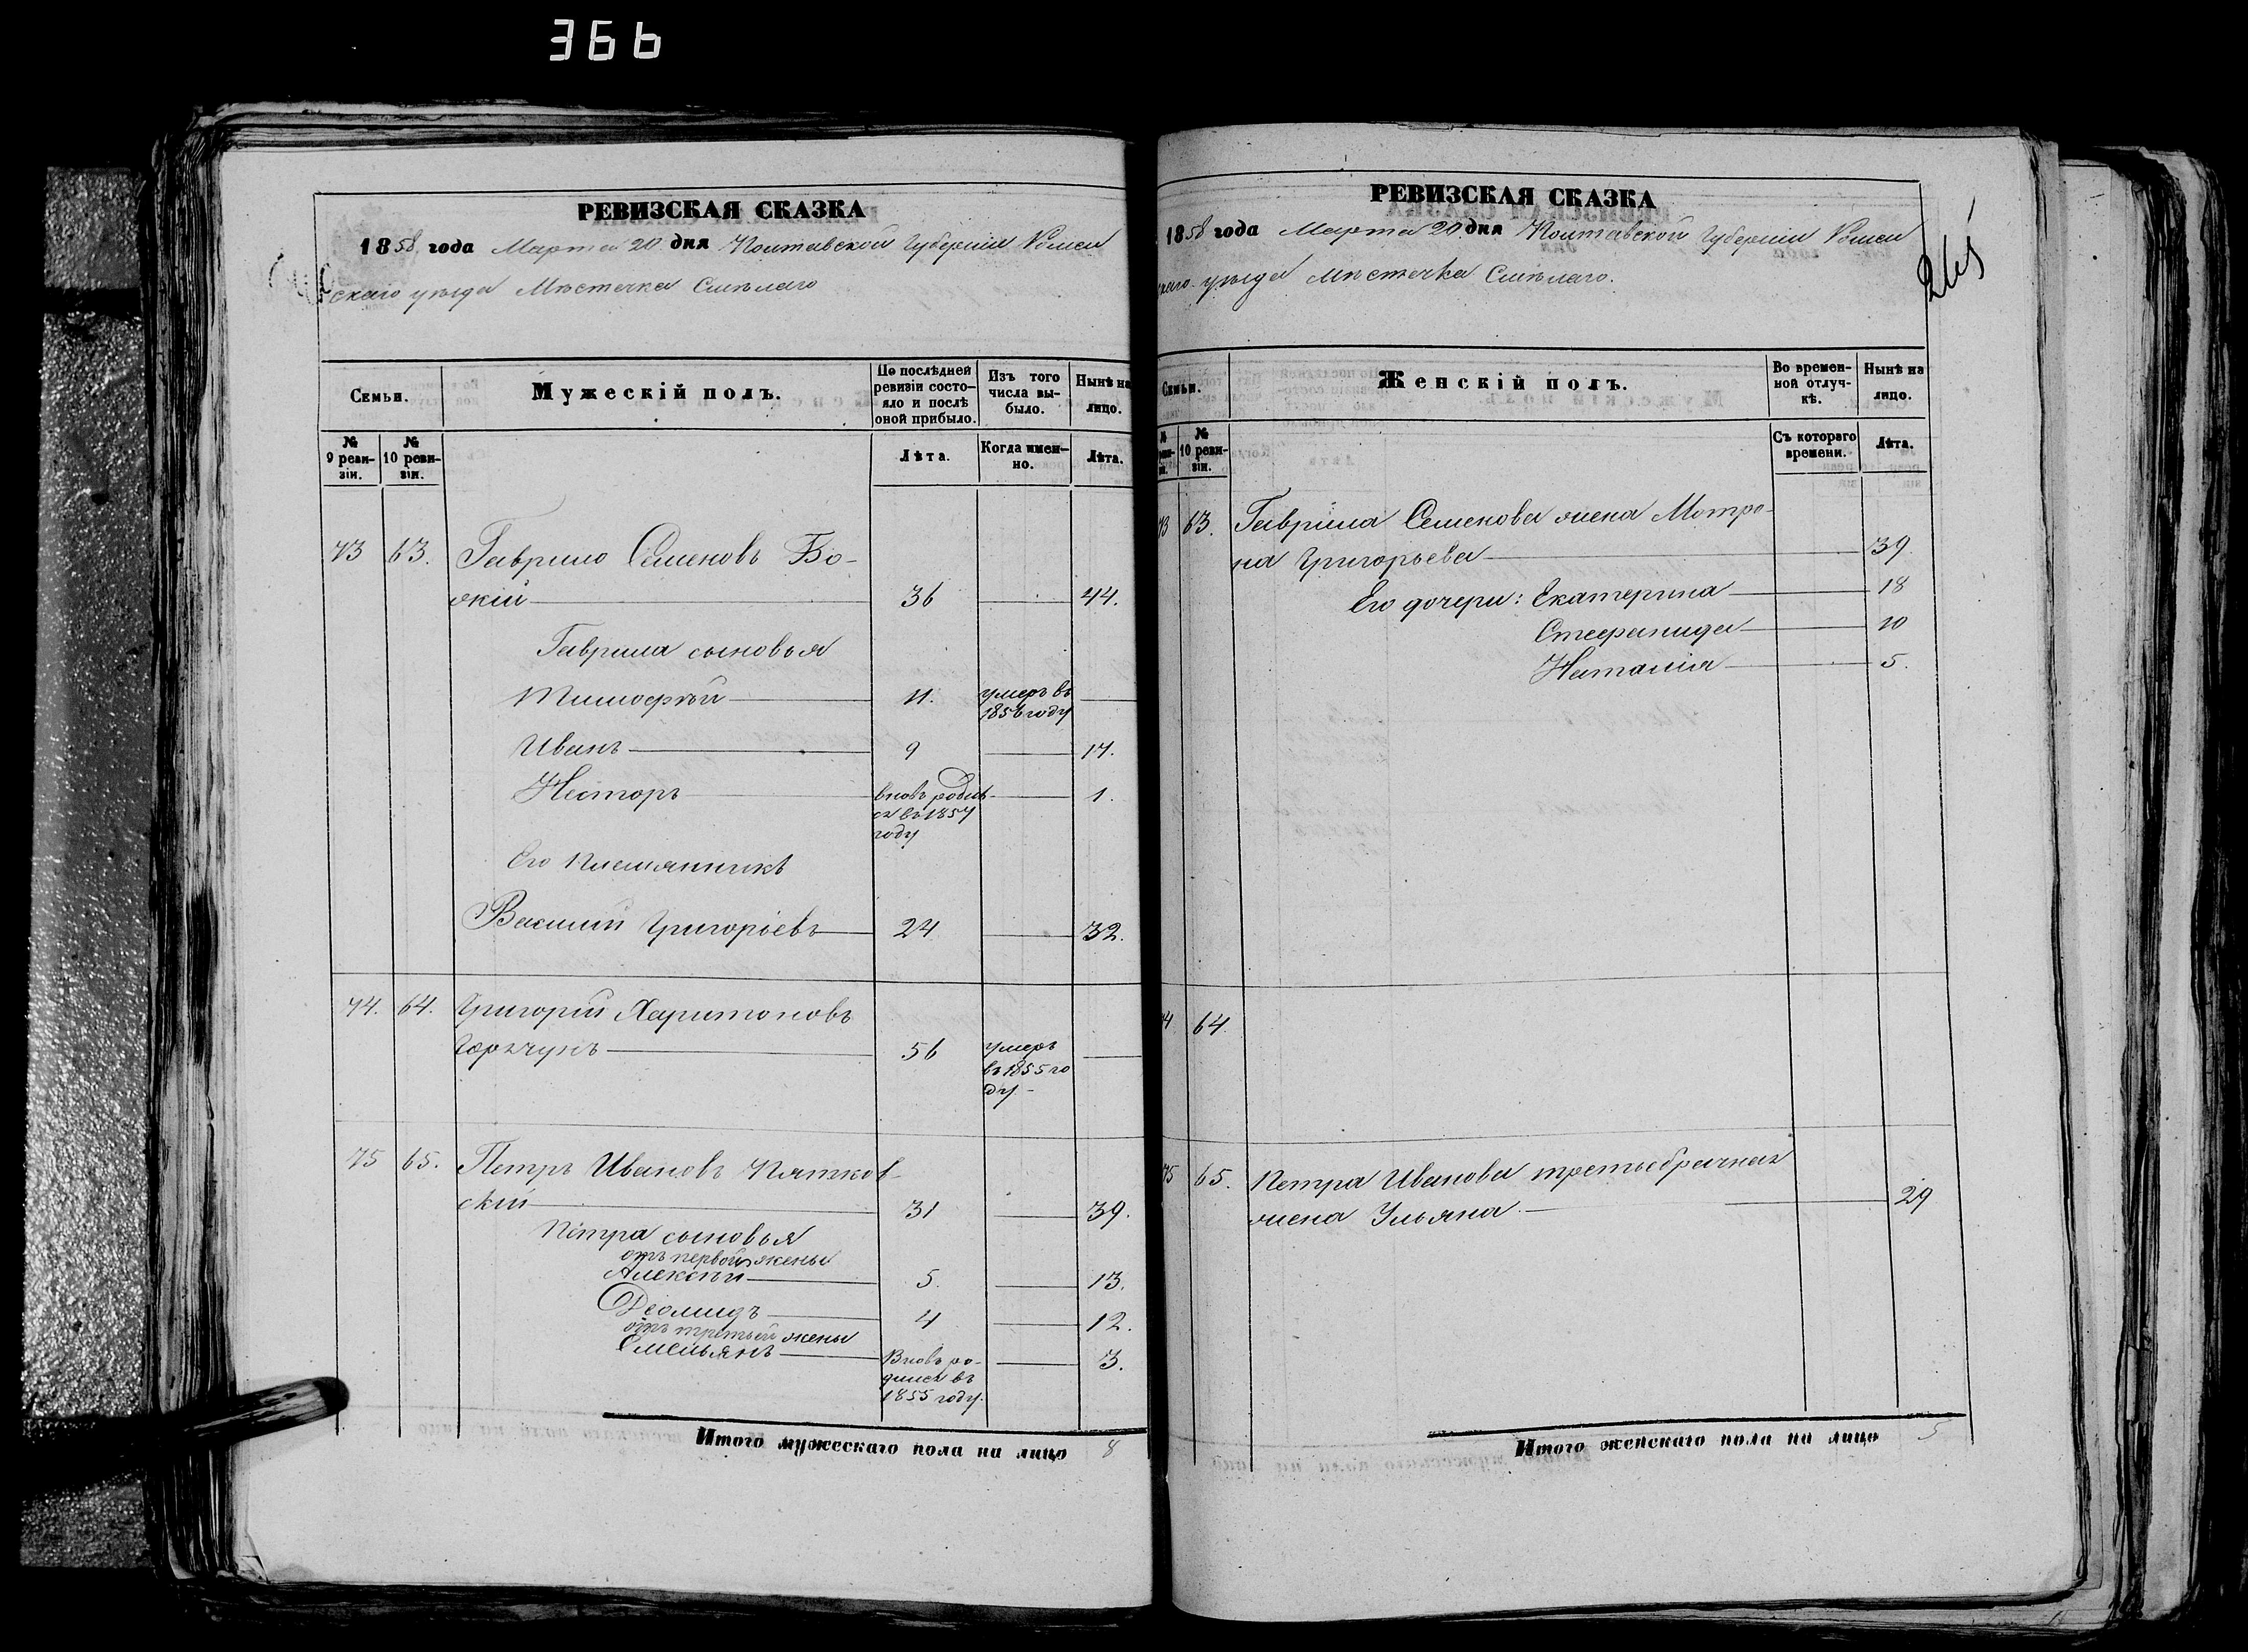 366
РЕВИЗСКАЯ СКАЗКА
1858 года Марта 20 дня Полтавской Губерніи Ромен
скаго уѣзда Мѣстечка Смѣлаго
Семьи.
Мужескій полъ.
По послѣдней ревизіи состояло и послѣ оной прибыло.
Изъ того числа выбыло.
Нынѣ на лицо.
№ 9 ревизіи.
№ 10 ревизіи.
Лѣта.
Когда именно.
Лѣта.
73 63. Гаврило Семеновъ Бо-
якій 36 44.
Гаврила сыновья
Тимофѣй 11. умеръ въ 1856 году
Иванъ 9 17.
Несторъ вновь родил-
ся въ 1857
году 1.
Его племянникъ
Василій Григорьевъ 24 32.
74. 64. Григорій Харитоновъ
56 умеръ
въ 1855 го
ду
75 65. Петръ Ивановъ Пятков-
скій 31 39.
Петра сыновья
отъ первой жены
Алексѣй 5. 13.
Діомидъ 4 12.
отъ третьей жены
Емельянъ Вновь ро-
дился въ
1855 году. 3.
Итого мужескаго пола на лицо 8
РЕВИЗСКАЯ СКАЗКА
1858 года Марта 20 дня Полтавской Губерніи Ромен
скаго уѣзда Мѣстечка Смѣлаго.
265
Семьи.
Женскій полъ.
Во временной отлучкѣ.
Нынѣ на лицо.
№ 10 ревизіи.
Съ котораго времени.
Лѣта.
73 63. Гаврила Семенова жена Мотро-
на Григорьева 39.
Его дочери: Екатерина 18
Стефанида 10
Наталія 5.
74 64
75 65. Петра Иванова третьебрачная
жена Ульяна 29
Итого женскаго пола на лицо 5